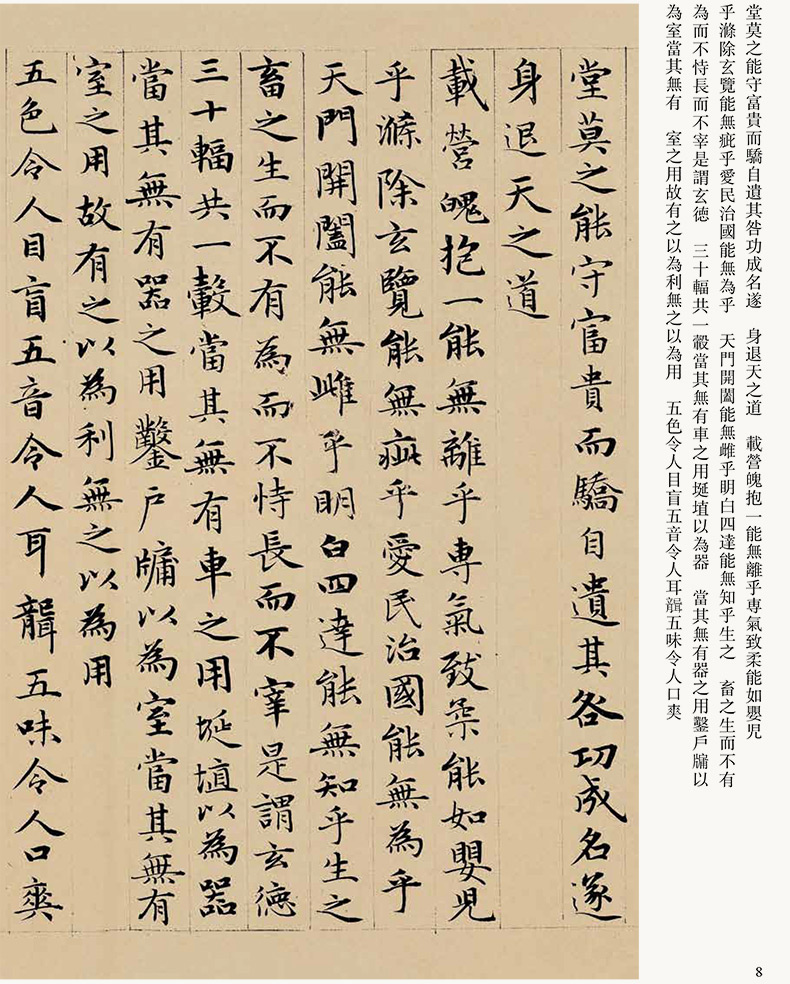 堂莫之能守富貴而驕自遺其咎功成名遂　身退天之道　載營魄抱一能無離乎専氣致柔能如嬰児
乎滌除玄覽能無疵乎愛民治國能無為乎　天門開闔能無雌乎明白四達能無知乎生之　畜之生而不有
為而不恃長而不宰是謂玄徳　三十輻共一轂當其無有車之用埏埴以為器　當其無有器之用鑿戶牗以
為室當其無有　室之用故有之以為利無之以為用　五色令人目盲五音令人耳聾五味令人口爽
堂莫之能守富貴而驕自遺其咎功成名遂
身退天之道
載營魄抱一能無離乎専氣致柔能如嬰児
乎滌除玄覽能無疵乎愛民治國能無為乎
天門開闔能無雌乎明白四達能無知乎生之
畜之生而不有為而不恃長而不宰是謂玄徳
三十輻共一轂當其無有車之用埏埴以為器
當其無有器之用鑿戶牗以為室當其無有
室之用故有之以為利無之以為用
五色令人目盲五音令人耳聾五味令人口爽
8